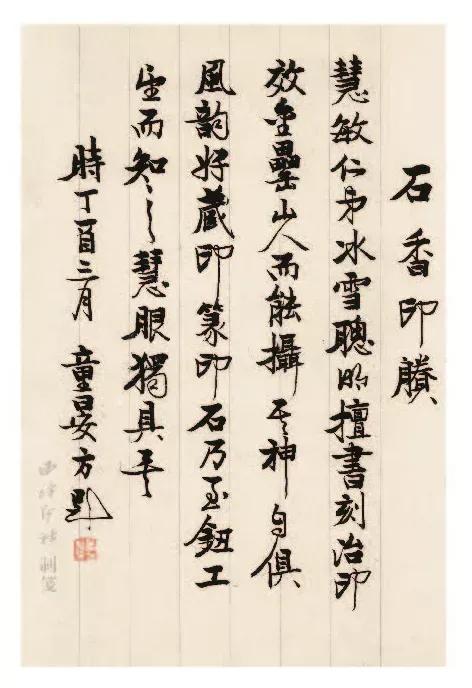 石香印賸
慧敏仁弟冰雪聰明擅書刻治印
效金罍山人而能攝其神自俱
風韵好藏印篆印石乃至鈕工
望而知之慧眼獨具乎
時丁酉三月 童晏方題
西泠印社制箋